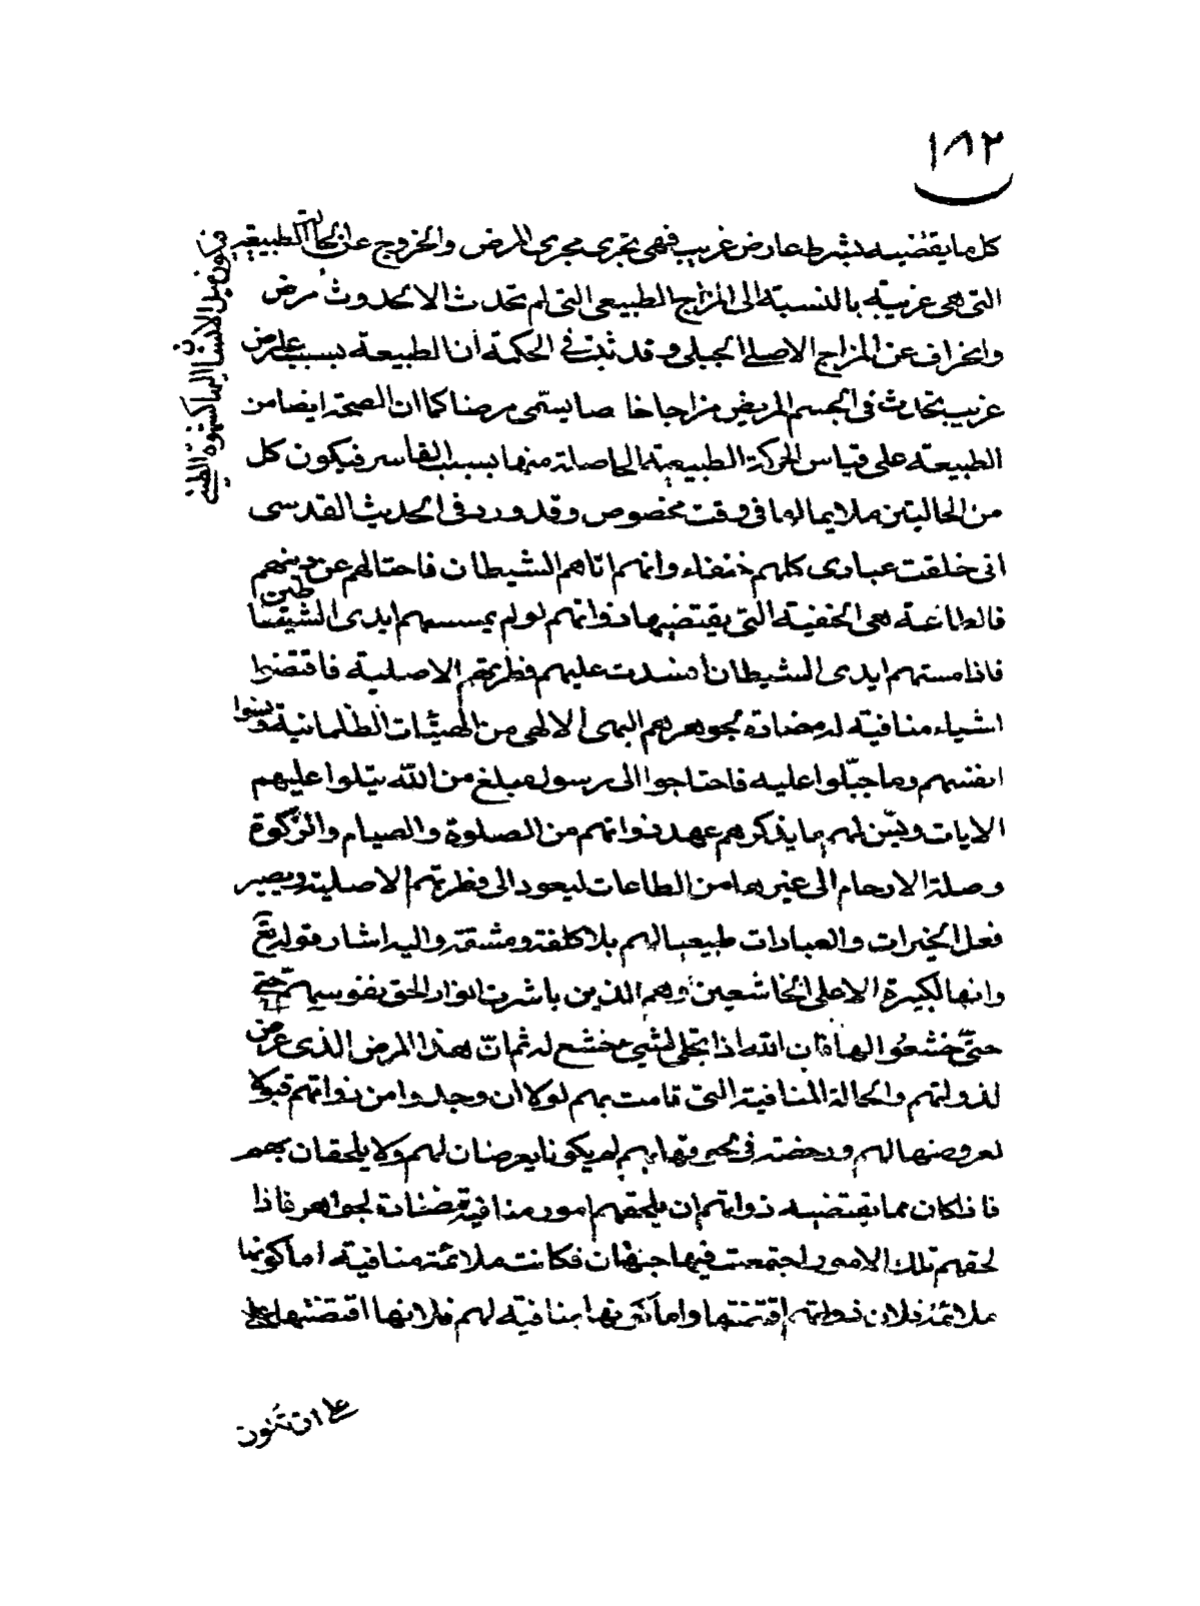 ١٨٢
كل ما يقتضيه بشرط عارض غريب فهى تجرى مجرى المرض والخروج عن الحالة الطبيعية
التى هى غريبة بالنسبة الى المزاج الطبيعى التى لم تحدث الا لحدوث مرض
وانحراف عن المزاج الاصلى الجبلى وقد ثبت فى الحكمة أن الطبيعة بسبب عارض
غريب تحدث فى الجسم المريض مزاجا خاصا يسمى مرضا كما ان الصحة ايضا من
الطبيعة على قياس الحركة الطبيعية الحاصلة منها بسبب القاسر فيكون كل
من الحالتين ملايما لها فى وقت مخصوص وقد ورد فى الحديث القدسى
انى خلقت عبادى كلهم حنفاء وانهم اتاهم الشيطان فاحتالهم عن دينهم
فالطاعة هى الحنفية التى يقتضيها ذواتهم لو لم يمسسهم ايدى الشياطين
فاذا مستهم ايدى الشيطان فسدت عليهم فطرتهم الاصلية فاقتضوا
اشياء منافية له مضادة لجوهرهم البهى الالهى من الهيئات الظلمانية ونسوا
انفسهم وما جبّلوا عليه فاحتاجوا الى رسول مبلغ من الله يتلوا عليهم
الايات ويبّن لهم ما يذكرهم عهد ذواتهم من الصلوة والصيام والزكوة
وصلة الارحام الى غيرها من الطاعات ليعود الى فطرتهم الاصلية ويصير
فعل الخيرات والعبادات طبيعيا لهم بلا كلفة ومشقة واليه اشار قوله تع
وانها لكبيرة الا على الخاشعين وهم الذين باشرت انوار الحق نفوسهم حتى
حتى خشعوا لها فان الله اذا تجلى لشئ خشع له ثم ان هذا المرض الذى عرض
لذواتهم والحالة المنافية التى قامت بهم لولا ان وجدوا من ذواتهم قبولا
لعروضها لهم ورخصة فى لحوقها بهم لم يكونا يعرضان لهم ولا يلحقان بهم
فاذا كان مما يقتضيه ذواتهم ان يلحقهم امور منافية مضادة لجواهر فاذا
لحقهم تلك الامور اجتمعت فيها جهتان فكانت ملائمة منافية اما كونها
ملائمة فلان ذواتهم اقتضتها واما كونها منافية لهم فلانها اقتضتها على
على ان تكون